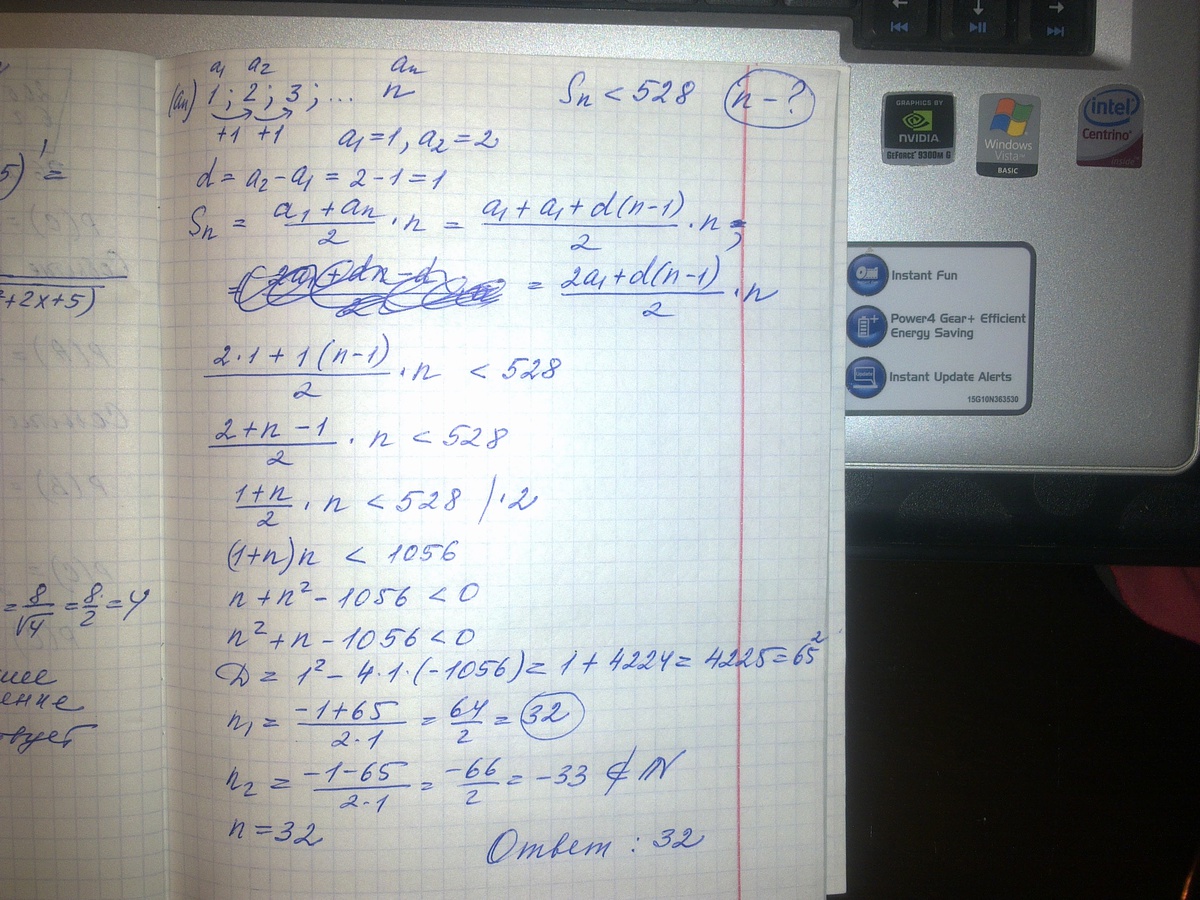 a₁ a₂ aₙ
(aₙ) 1 ; 2 ; 3 ; ... n Sₙ < 528 n - ?
+1 +1 a₁ = 1, a₂ = 2
d = a₂ - a₁ = 2 - 1 = 1
Sₙ = (a₁ + aₙ)/2 · n = (a₁ + a₁ + d(n-1))/2 · n =
= (2a₁ + d(n-1))/2 · n
(2·1 + 1(n-1))/2 · n < 528
(2 + n - 1)/2 · n < 528
(1+n)/2 · n < 528 /·2
(1+n)n < 1056
n + n² - 1056 < 0
n² + n - 1056 < 0
D = 1² - 4·1·(-1056) = 1 + 4224 = 4225 = 65²
n₁ = (-1+65)/(2·1) = 64/2 = 32
n₂ = (-1-65)/(2·1) = -66/2 = -33 ∉ N
n = 32
Ответ : 32
5) =
²+2x+5)
= 8/√4 = 8/2 = 4
шее
ение
твует
GRAPHICS BY
NVIDIA
GEFORCE 9300M G
Windows Vista™
BASIC
intel
Centrino
inside™
Instant Fun
Power4 Gear+ Efficient
Energy Saving
Instant Update Alerts
15G10N363530